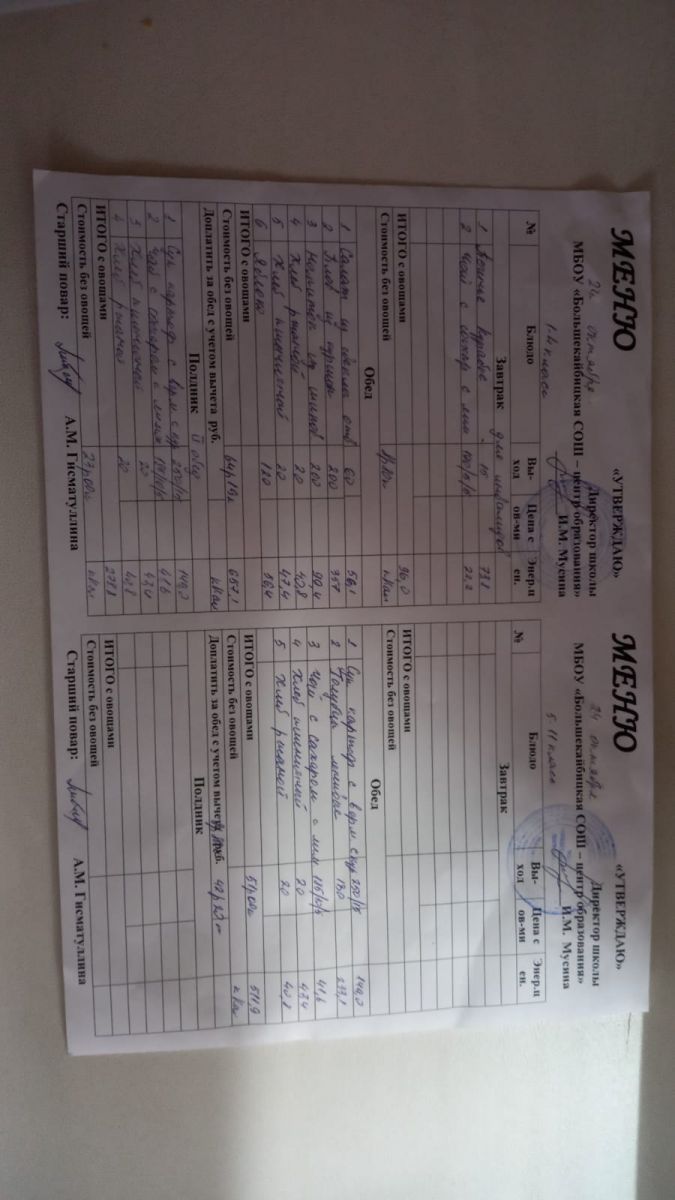 «УТВЕРЖДАЮ»
Директор школы
МБОУ «Большекайбицкая СОШ – центр образования»
И.М. Мусина
МЕНЮ
24 октября
1-4 класс
№ Блюдо Вы-ход Цена с ов-ми Энер.ц ен.
Завтрак для инвалидов
1 Печенье курабье 15 73,1
2 Чай с сахар с лим
ИТОГО с овощами 96,0
Стоимость без овощей ккал
Обед
1 Салат из свеклы отв 60 56,1
2 Плов из курицы 200 357
3 Напиток из шипов 200 99,4
4 Хлеб ржаной 20 40,8
5 Хлеб пшеничный 20 47,4
6 Яблоко 120 56,4
ИТОГО с овощами 657,1
Стоимость без овощей 64р19к ккал
Доплатить за обед с учетом вычета руб.
Полдник II обед
1 Суп картоф с верм с кур 250/15 149,0
2 Чай с сахаром с лимон 41,6
3 Хлеб пшеничный 20 47,4
4 Хлеб ржаной 20 40,8
ИТОГО с овощами ккал
Стоимость без овощей 23р00к
Старший повар: А.М. Гисматуллина
«УТВЕРЖДАЮ»
Директор школы
МБОУ «Большекайбицкая СОШ – центр образования»
И.М. Мусина
МЕНЮ
24 октября
5-11 класс
№ Блюдо Вы-ход Цена с ов-ми Энер.ц ен.
Завтрак
ИТОГО с овощами
Стоимость без овощей
Обед
1 Суп картоф с верм с кур 250/15 149,0
2 Голубцы ленивые 130 233,1
3 Чай с сахаром с лим 41,6
4 Хлеб пшеничный 20 47,4
5 Хлеб ржаной 20 40,8
ИТОГО с овощами 511,9
Стоимость без овощей 51р00к ккал
Доплатить за обед с учетом вычета руб.
Полдник
ИТОГО с овощами
Стоимость без овощей
Старший повар: А.М. Гисматуллина